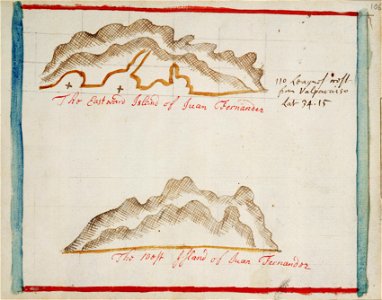 110 Leagues west
from Valparaiso
Lat 34-15
The Eastward Island of Juan Fernandez
The West Island of Juan Fernandez